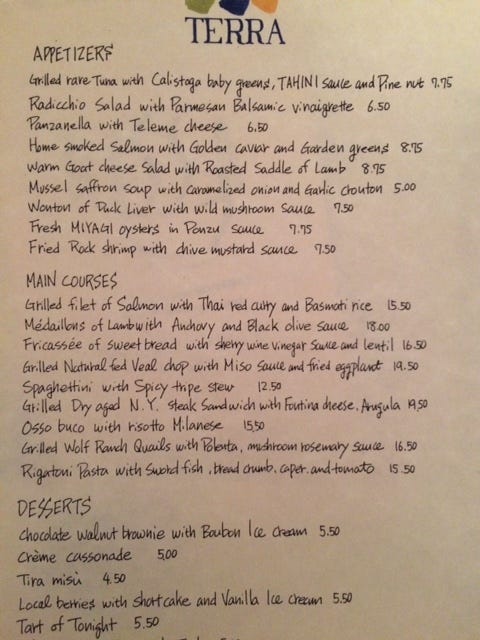 TERRA
APPETIZERS
Grilled rare Tuna with Calistoga baby greens, TAHINI sauce and Pine nut 7.75
Radicchio Salad with Parmesan Balsamic vinaigrette 6.50
Panzanella with Teleme cheese 6.50
Home smoked Salmon with Golden caviar and Garden greens 8.75
Warm Goat cheese Salad with Roasted Saddle of Lamb 8.75
Mussel saffron soup with caramelized onion and Garlic crouton 5.00
Wonton of Duck Liver with wild mushroom sauce 7.50
Fresh MIYAGI oysters in Ponzu sauce 7.75
Fried Rock shrimp with chive mustard sauce 7.50
MAIN COURSES
Grilled filet of Salmon with Thai red curry and Basmati rice 15.50
Médaillons of Lamb with Anchovy and Black olive sauce 18.00
Fricassée of sweetbread with sherry wine vinegar sauce and lentil 16.50
Grilled Natural fed Veal chop with Miso sauce and fried eggplant 19.50
Spaghettini with Spicy tripe stew 12.50
Grilled Dry aged N.Y. steak Sandwich with Fontina cheese, Arugula 19.50
Osso buco with risotto Milanese 15.50
Grilled Wolf Ranch Quails with Polenta, mushroom rosemary sauce 16.50
Rigatoni Pasta with Sword fish, bread crumb, caper and tomato 15.50
DESSERTS
Chocolate walnut brownie with Boubon Ice cream 5.50
Crème cassonade 5.00
Tira misù 4.50
Local berries with shortcake and Vanilla Ice cream 5.50
Tart of Tonight 5.50